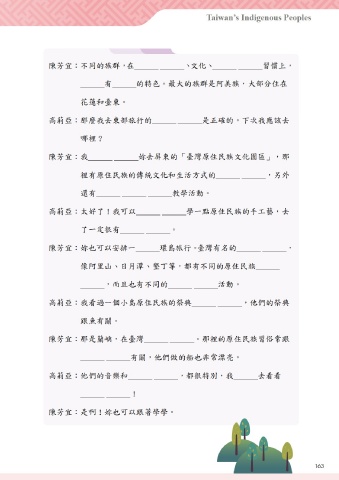 Taiwan's Indigenous Peoples
陳芳宜：不同的族群，在______ ______、文化、______ ______習慣上，
______有______的特色。最大的族群是阿美族，大部分住在
花蓮和臺東。
高莉亞：那麼我去東部旅行的______ ______是正確的，下次我應該去
哪裡？
陳芳宜：我______ ______妳去屏東的「臺灣原住民族文化園區」，那
裡有原住民族的傳統文化和生活方式的______ ______，另外
還有______ ______ ______教學活動。
高莉亞：太好了！我可以______ ______學一點原住民族的手工藝，去
了一定很有______ ______。
陳芳宜：妳也可以安排一______環島旅行。臺灣有名的______ ______，
像阿里山、日月潭、墾丁等，都有不同的原住民族______
______，而且也有不同的______ ______活動。
高莉亞：我看過一個小島原住民族的祭典______ ______，他們的祭典
跟魚有關。
陳芳宜：那是蘭嶼，在臺灣______ ______。那裡的原住民族習俗常跟
______ ______有關，他們做的船也非常漂亮。
高莉亞：他們的音樂和______ ______，都很特別，我______去看看
______ ______！
陳芳宜：是啊！妳也可以跟著學學。
163